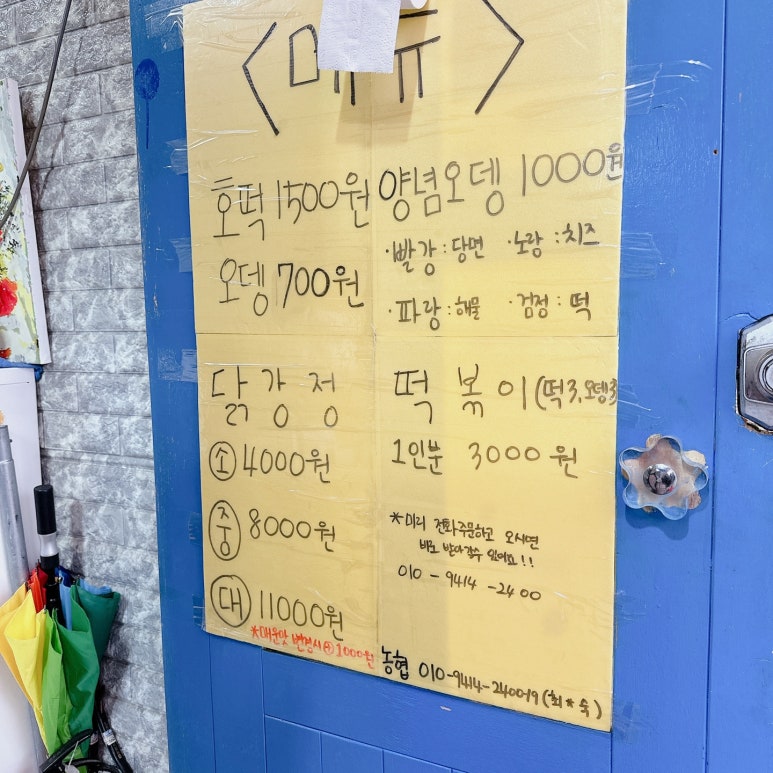 <메뉴>
호떡 1500원
오뎅 700원
양념오뎅 1000원
·빨강:당면 ·노랑:치즈
·파랑:해물 ·검정:떡
닭강정
소 4000원
중 8000원
대 11000원
*매운맛 변경시 + 1000원
떡볶이(떡3,오뎅3
1인분 3000원
*미리 전화주문하고 오시면
바로 받아갈수 있어요!!
010-9414-2400
농협 010-9414-2400-19(최*숙)